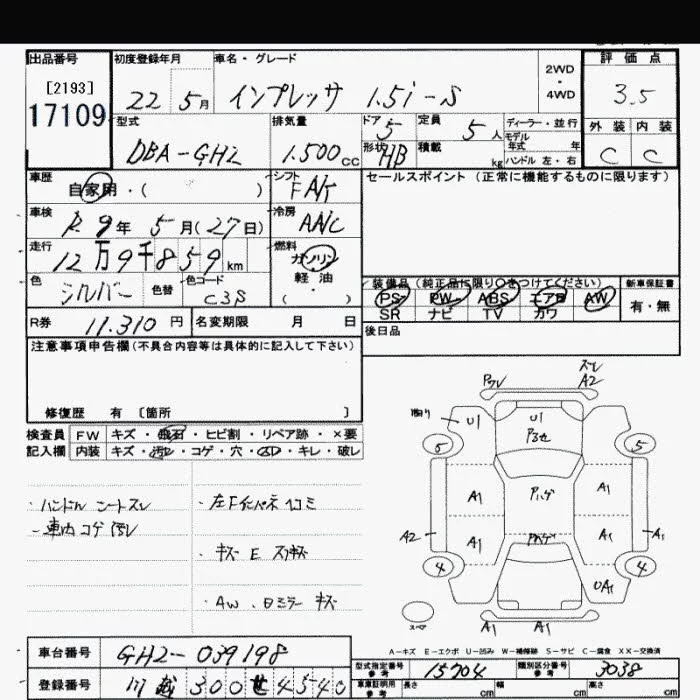 出品番号 初度登録年月 車名・グレード 2WD・4WD 評価点
[2193]
17109 22 5月 インプレッサ 1.5i-S 3.5
型式 排気量 ドア 5 定員 5人 ディーラー・並行 外装 内装
DBA-GH2 1.500cc 形状 HB 積載 kg モデル年式 年 ハンドル 左・右 C C
車歴 自家用・( ) シフト FA/T セールスポイント(正常に機能するものに限ります)
車検 R9年 5月(27日) 冷房 AA/C
走行 12万9千859km 燃料 ガソリン 軽油 ( ・ )
色 シルバー 色替 色コード C3S
装備品(純正品に限り○をつけてください) 新車保証書
PS PW ABS エアB AW 有・無
SR ナビ TV カワ
R券 11.310円 名変期限 月 日 後日品
注意事項申告欄(不具合内容等は具体的に記入して下さい)
修復歴 有 〔箇所 〕
検査員 FW キズ・飛石・ヒビ割・リペア跡・×要
記入欄 内装 キズ・汚レ・コゲ・穴・スレ・キレ・破レ
・ハンドル シートスレ ・左Fインパネ ヘコミ
・車内 コゲ 汚レ
・キズ E スリキズ
・AW、Dミラー キズ
スレ
A2
U1 U1
5 5
A1 A1
A2 A1 A1 A1
4 4
UA1
スペア A1 A1
A-キズ E-エクボ U-凹み W-補修跡 S-サビ C-腐食 XX-交換済
車台番号 GH2-039198 型式指定番号 参考 15704 類別区分番号 参考 3038
登録番号 川越 300 せ 4540 車庫証明用 参考 長さ cm 幅 cm 高さ cm